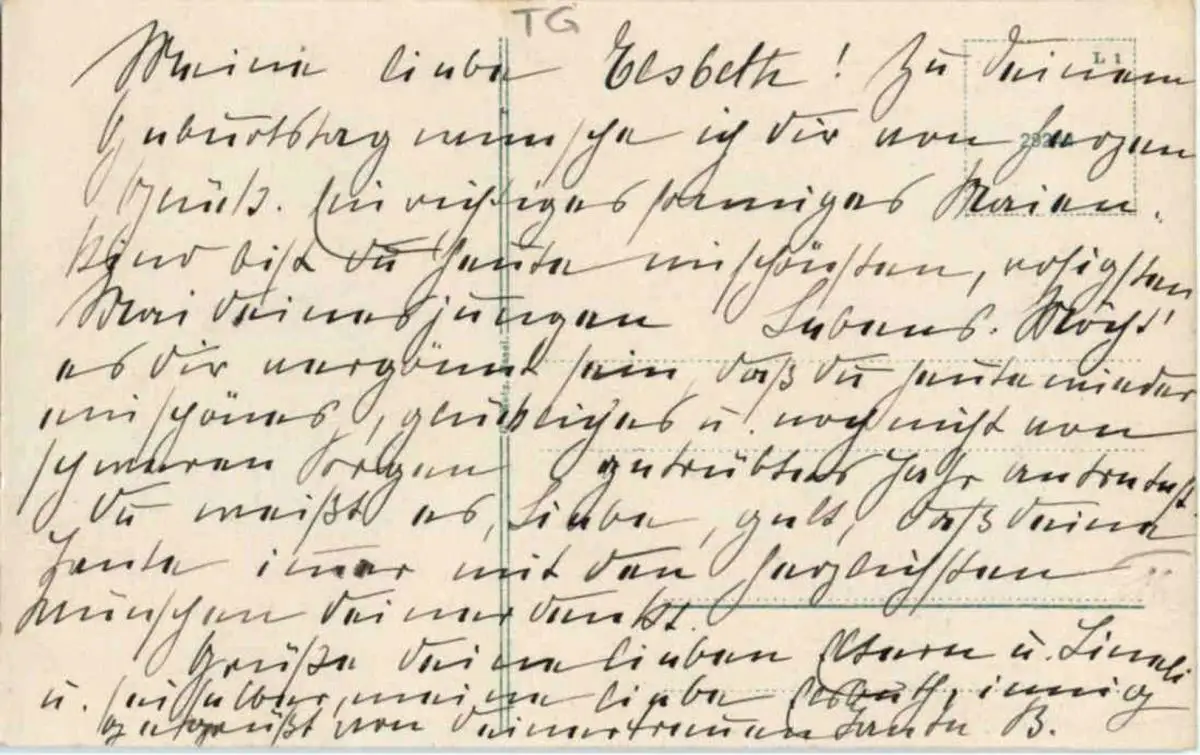 TG
L 1
Meine liebe Elsbeth! Zu deinem
Geburtstag wünsche ich dir von Herzen
Glück. Ein richtiges sonniges Maien-
kind bist du heute im schönsten, rosigsten
Mai deines jungen Lebens. Möcht'
es dir vergönnt sein, daß du heute wieder
ein schönes, glückliches u. noch nicht von
schweren Sorgen getrübtes Jahr antrittst.
Du weißt es, Liebe, gelt, daß deine
Tante immer mit den herzlichsten
Wünschen deiner denkt.
Grüße deine lieben Eltern u. Lineli
u. sei selber, meine liebe Elsbeth, innig
gegrüßt von deiner treuen Tante B.